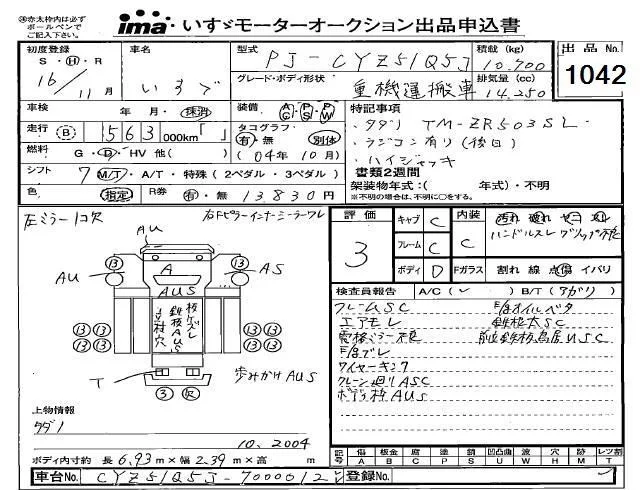 ※赤太枠内は必ず
ボールペンで
ご記入下さい。
ima いすゞモーターオークション出品申込書
初度登録 車名 型式 PJ-CYZ51Q5J 積載(kg) 10,700 出品No. 1042
S・H・R 16/11月 いすゞ グレード・ボディ形状 重機運搬車 排気量(cc) 14,250
車検 年 月・抹消 装備 AC PS PW 特記事項
走行 B 563 000km「 」 タコグラフ 有・無 別体 ・タダノ TM-ZR503SL
燃料 G・D・HV 他( ) (04年10月) ・ラジコン有り(後日)
・ハイジャッキ
シフト 7 M/T・A/T・特殊(2ペダル・3ペダル) 書類2週間
色 指定 R券 有・無 13830円 架装物年式:( 年式)・不明
※不明の場合は、不明に○をする。
左ミラー1コ欠 右Fピラーインナーミラーワレ
評価 3 キャブ C 内装 C 汚れ 破れ ヤニ スレ
フレーム C ハンドルスレ グリップ不良
ボディ D Fガラス 割れ 線 点傷 イバリ
AU
13 A 13
AU AS
AUS
13 13 13 13
板クズレ
鉄板AUS
13 13 13 13
T
3 仄
歩みかけAUS
検査員報告 A/C( ) B/T(アガリ)
フレームSC
エアモレ 鉄板大SC
電格ミラー不良 前鉄板鳥居USC
ワイヤーキンク
クレーン廻りASC
ボデー枠AUS
上物情報
タダノ
10, 2004
ボディ内寸約 長 6.93m×幅 2.39m×高 m
記号 傷 板金 腐 塗 錆 凹凸曲 波 穴 跡 レツ割
A B C P S U W H M T
車台No. CYZ51Q5J-7000012 登録No.